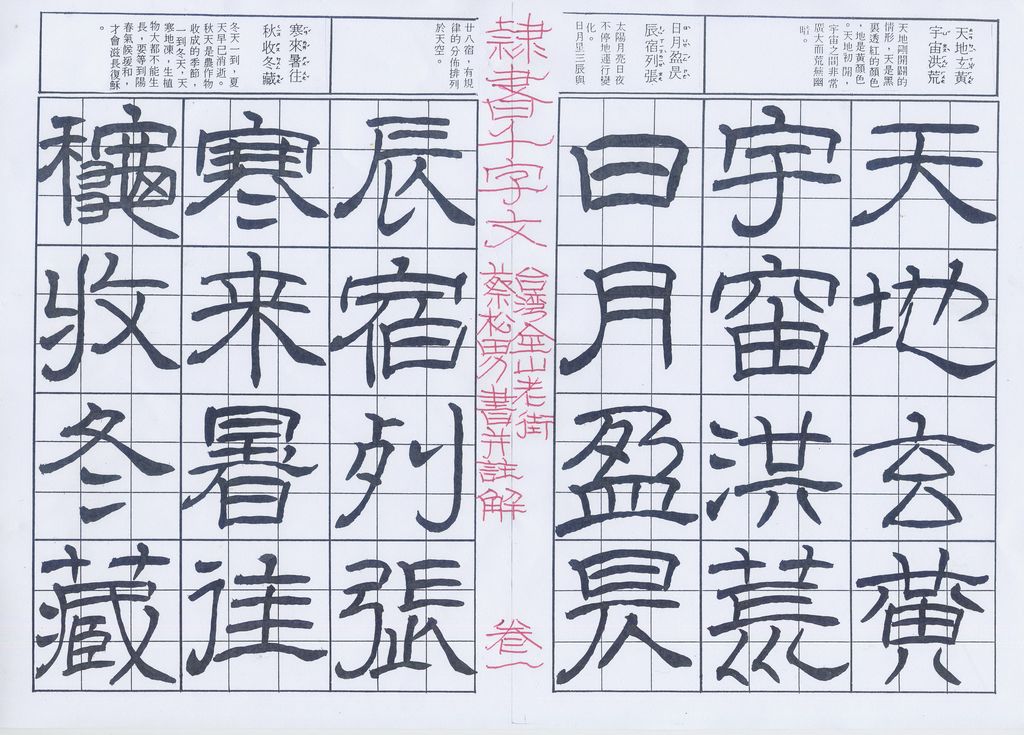 天地玄黃
宇宙洪荒
天地剛開闢的
情形，天是黑
裏透紅的顏色
，地是黃顏色
。天地初開，
宇宙之間非常
廣大而荒蕪幽
暗。
日月盈昃
辰宿列張
太陽月亮日夜
不停地運行變
化。
日月星三辰與
天地玄黃
宇宙洪荒
日月盈昃
隸書千字文
台灣金山老街
蔡松男書并註解
卷一
廿八宿，有規
律的分佈排列
於天空。
寒來暑往
秋收冬藏
冬天一到，夏
天早已消逝。
秋天是農作物
收成的季節，
一到冬天，天
寒地凍，生植
物大都不能生
長，要等到陽
春氣候暖和，
才會滋長復穌
。
辰宿列張
寒来暑往
穐收冬藏